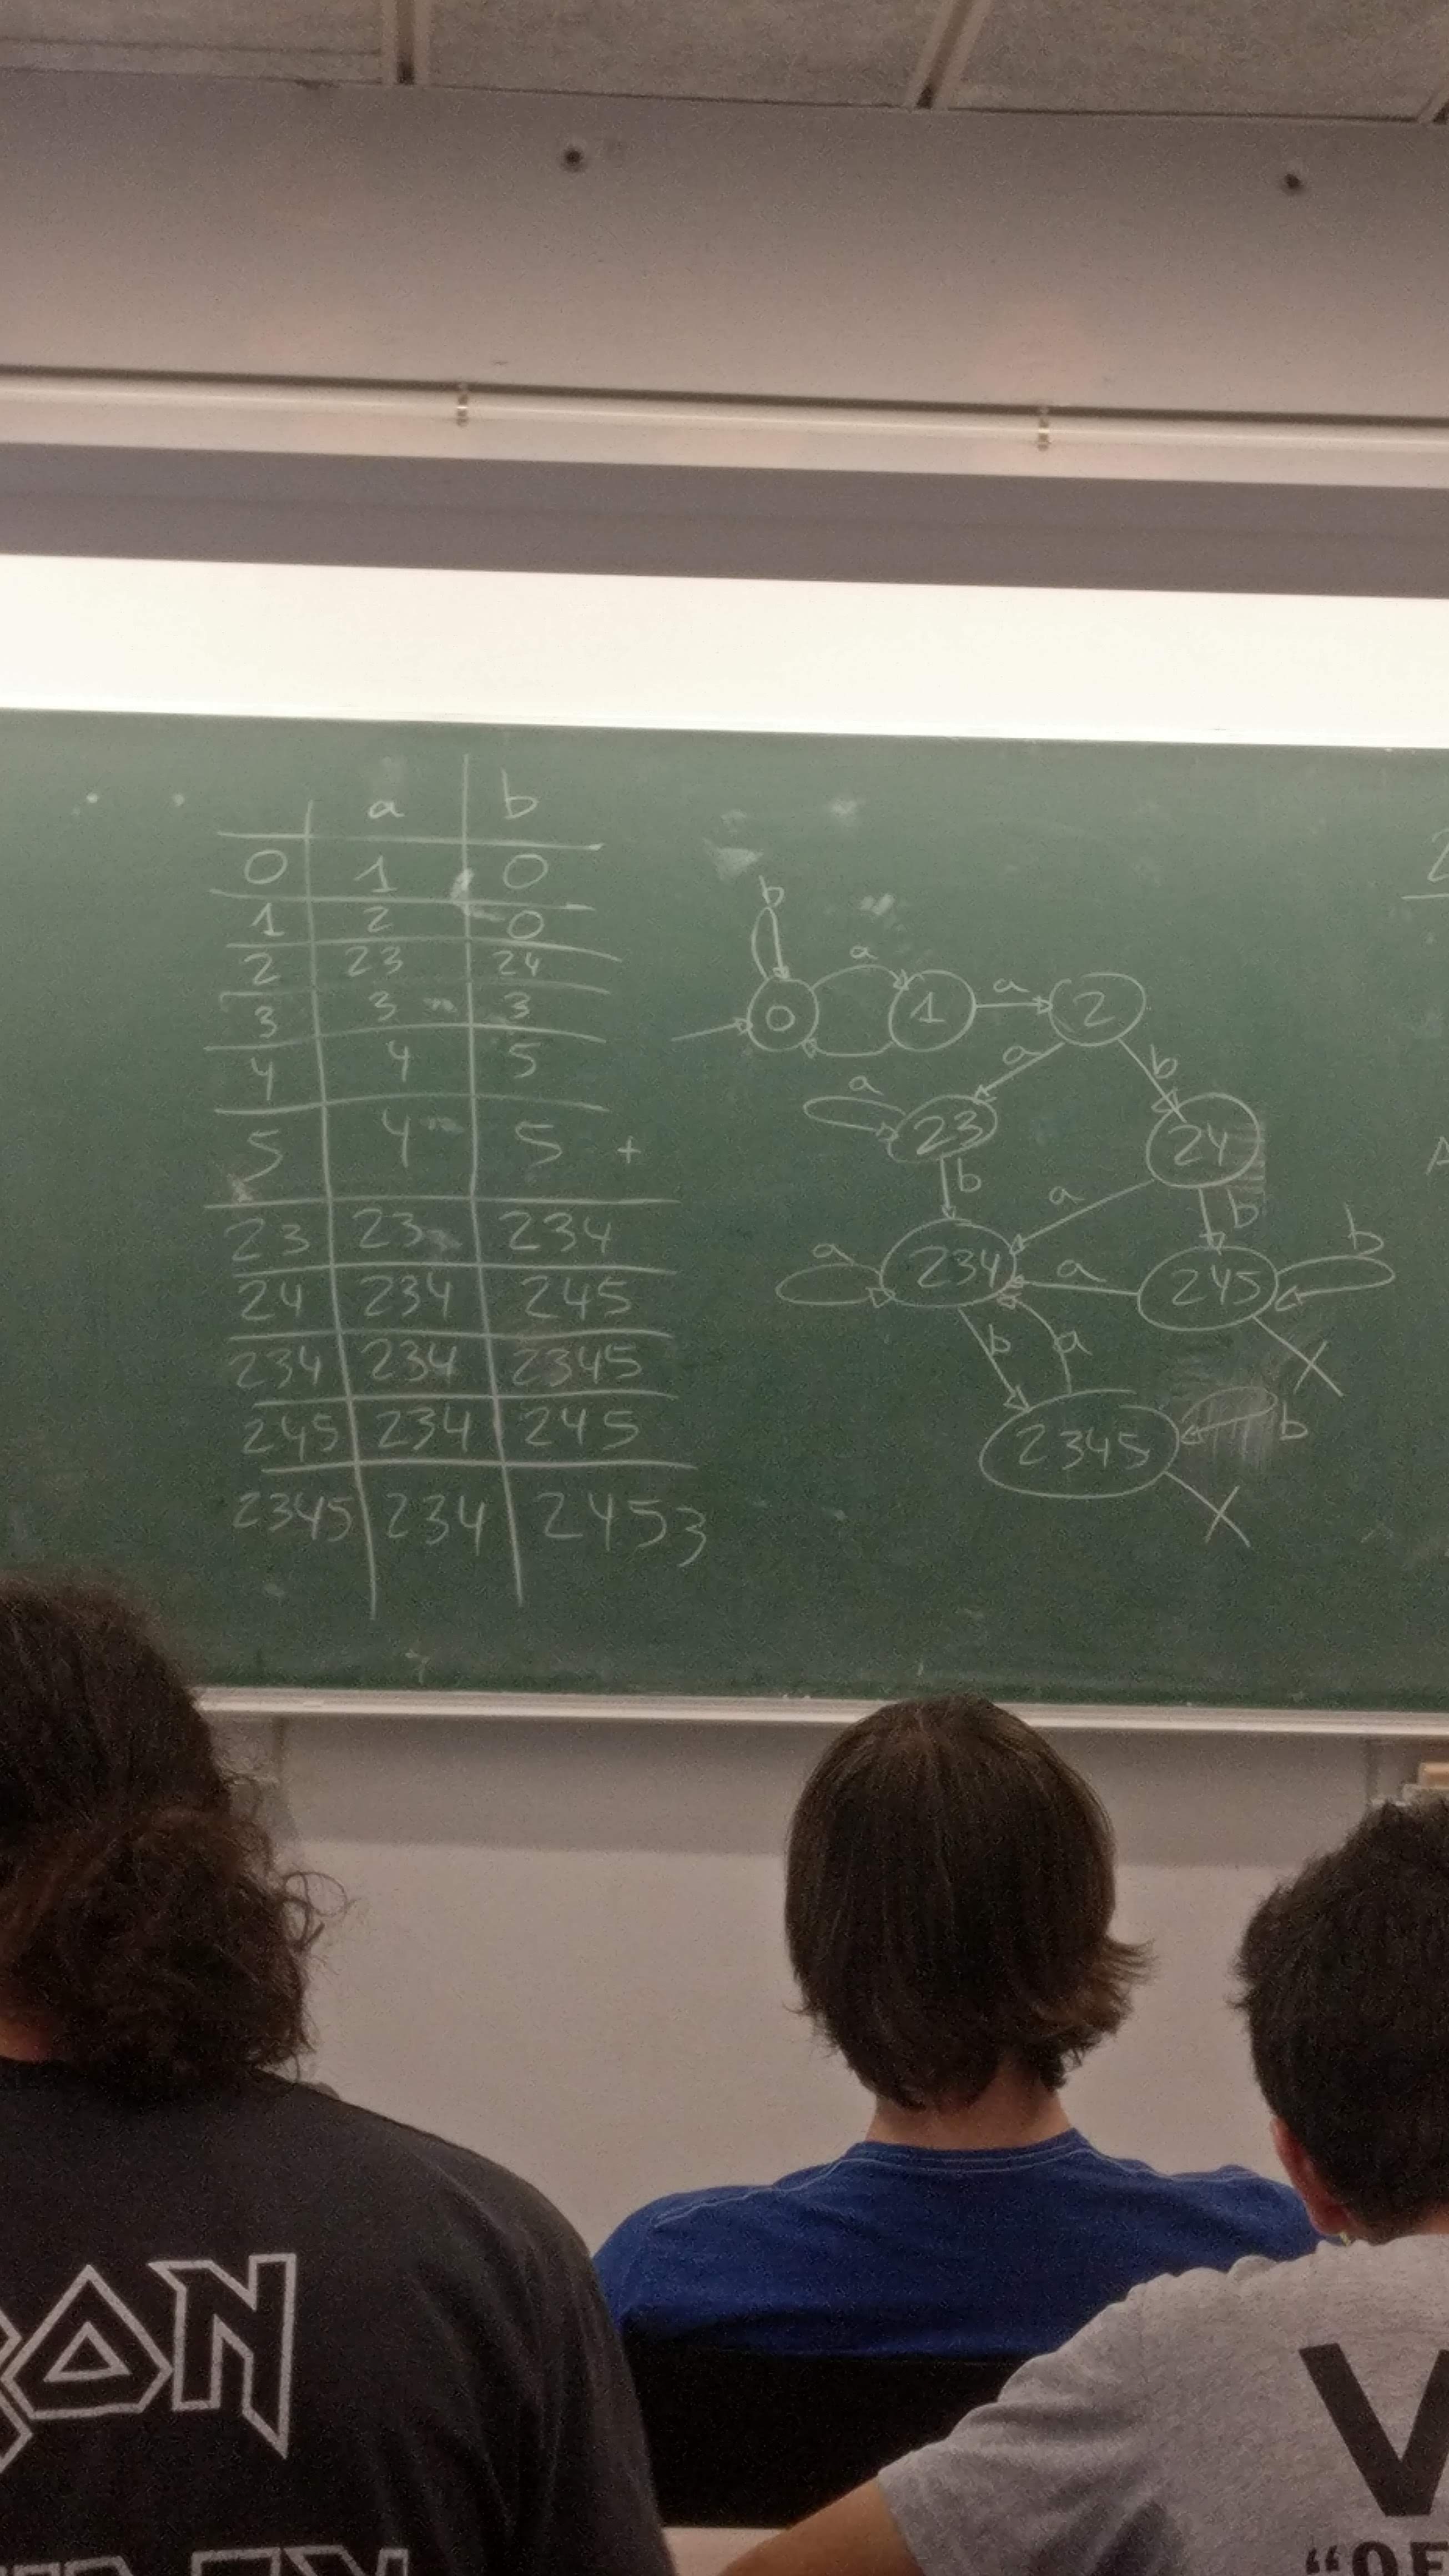 a b
0 1 0
1 2 0
2 23 24
3 3 3
4 4 5
5 4 5 +
23 23 234
24 234 245
234 234 2345
245 234 245
2345 234 2453
b
a
0 1 a 2
a b
a
23 24
b a b
b
a 234 a 245
b a
2345 b
X
X
2
A
ON
V
"OF